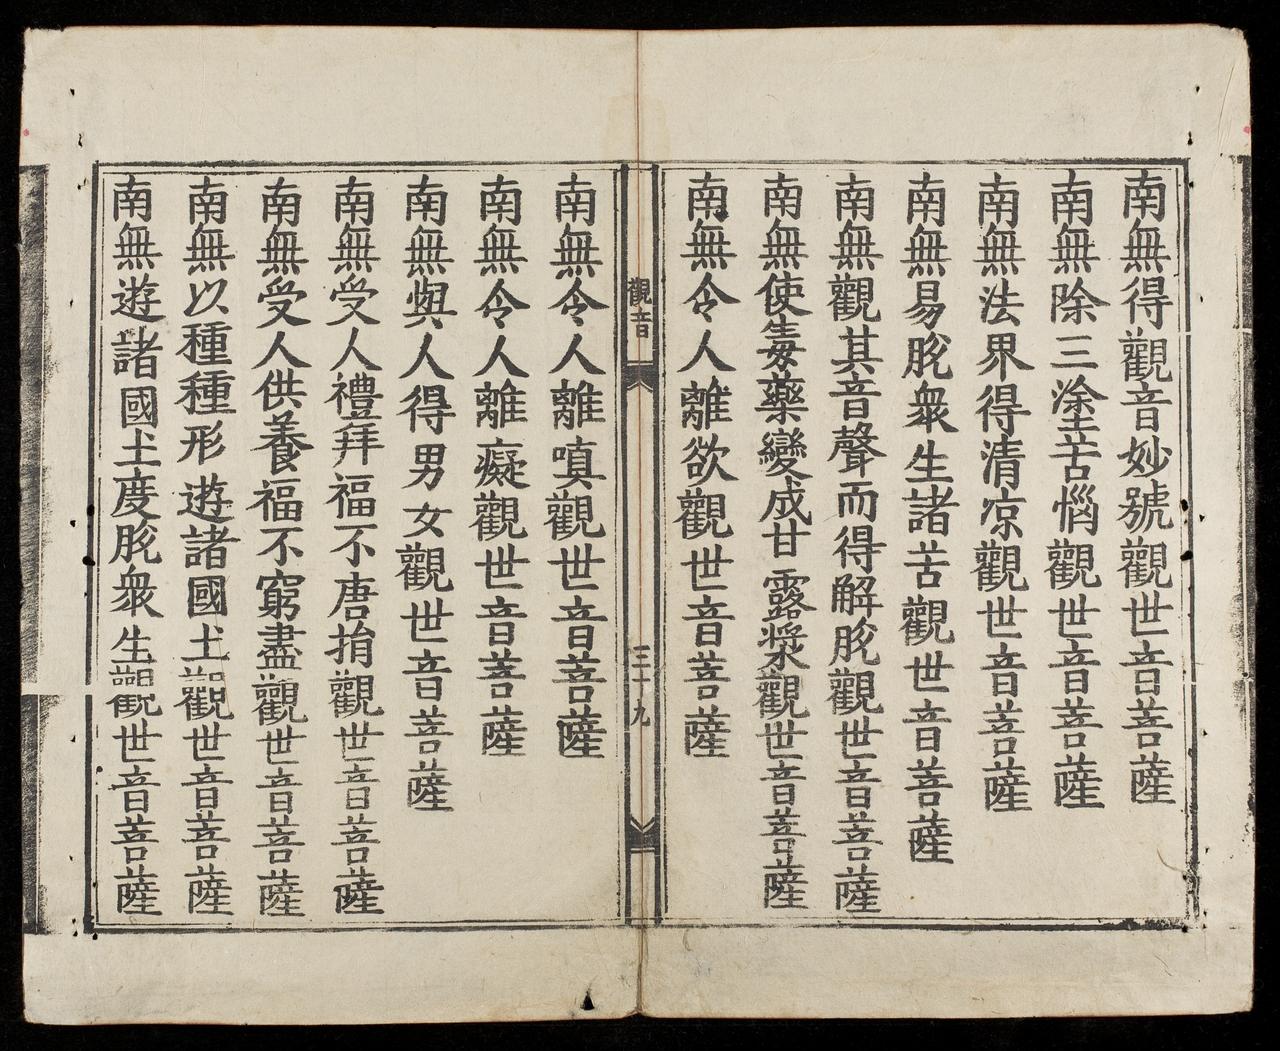 南無得觀音妙號觀世音菩薩
南無除三塗苦惱觀世音菩薩
南無法界得清凉觀世音菩薩
南無易脫衆生諸苦觀世音菩薩
南無觀其音聲而得解脫觀世音菩薩
南無使毒藥變成甘露漿觀世音菩薩
南無令人離欲觀世音菩薩
觀音
三十九
南無令人離嗔觀世音菩薩
南無令人離癡觀世音菩薩
南無與人得男女觀世音菩薩
南無受人禮拜福不唐捐觀世音菩薩
南無受人供養福不窮盡觀世音菩薩
南無以種種形遊諸國土觀世音菩薩
南無遊諸國土度脫衆生觀世音菩薩